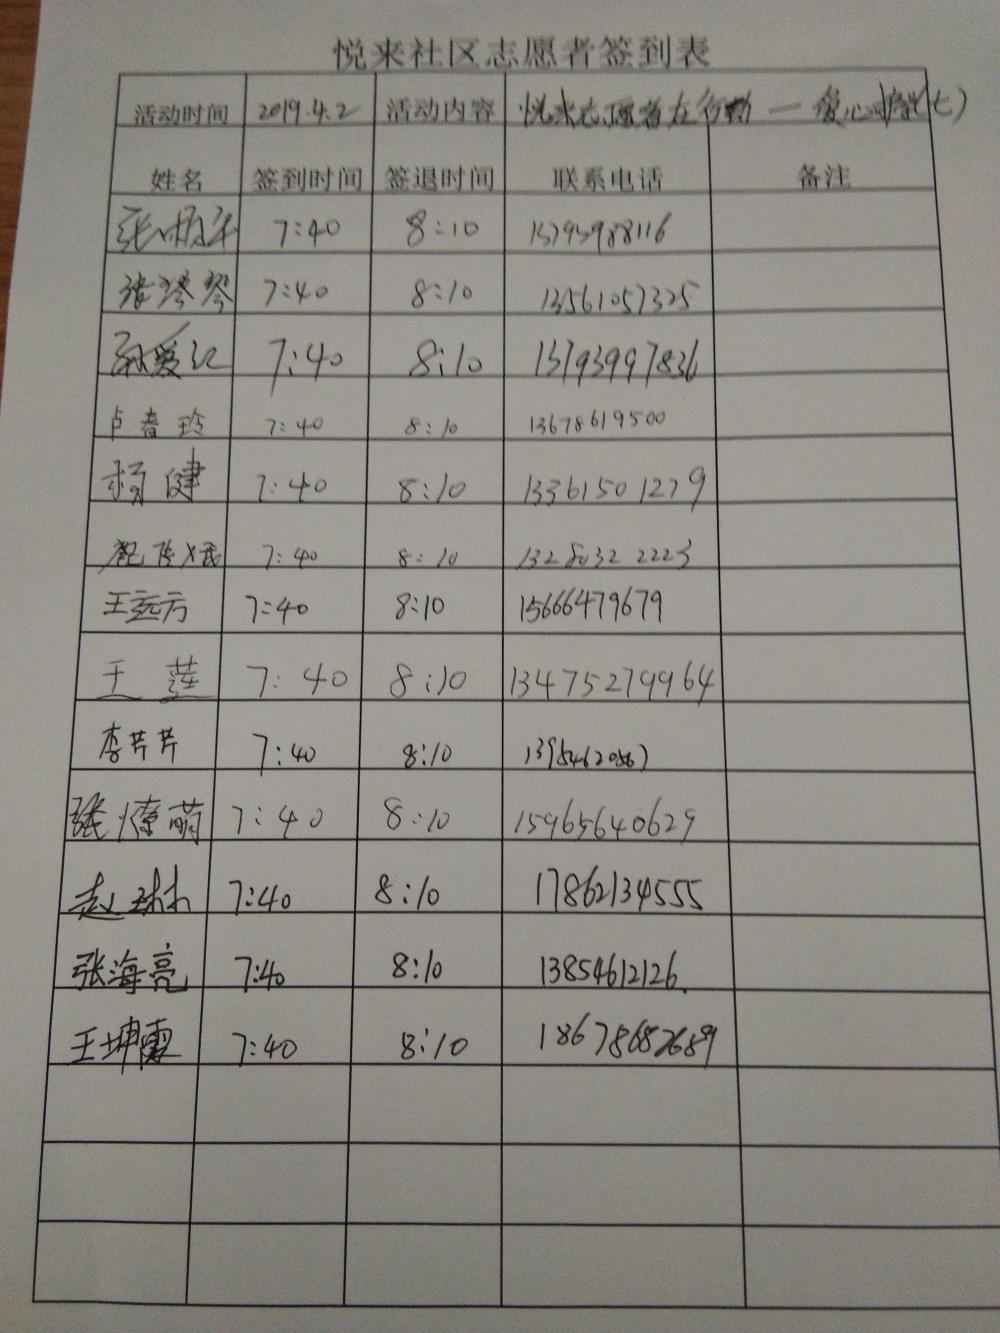 悦来社区志愿者签到表
活动时间 2019.4.2 活动内容 悦来志愿者在行动 — 爱心护学(七)
姓名 签到时间 签退时间 联系电话 备注
张 7:40 8:10 13793988116
张琴琴 7:40 8:10 13561057325
孙爱红 7:40 8:10 13793997836
卢春玲 7:40 8:10 13678619500
杨健 7:40 8:10 13361501279
7:40 8:10 1328032 2223
王远方 7:40 8:10 15666479679
王莲 7:40 8:10 13475279964
李芹芹 7:40 8:10
张燎萌 7:40 8:10 15965640629
赵琳 7:40 8:10 17862134555
张海亮 7:40 8:10 13854612126.
王坤霞 7:40 8:10 18678682689